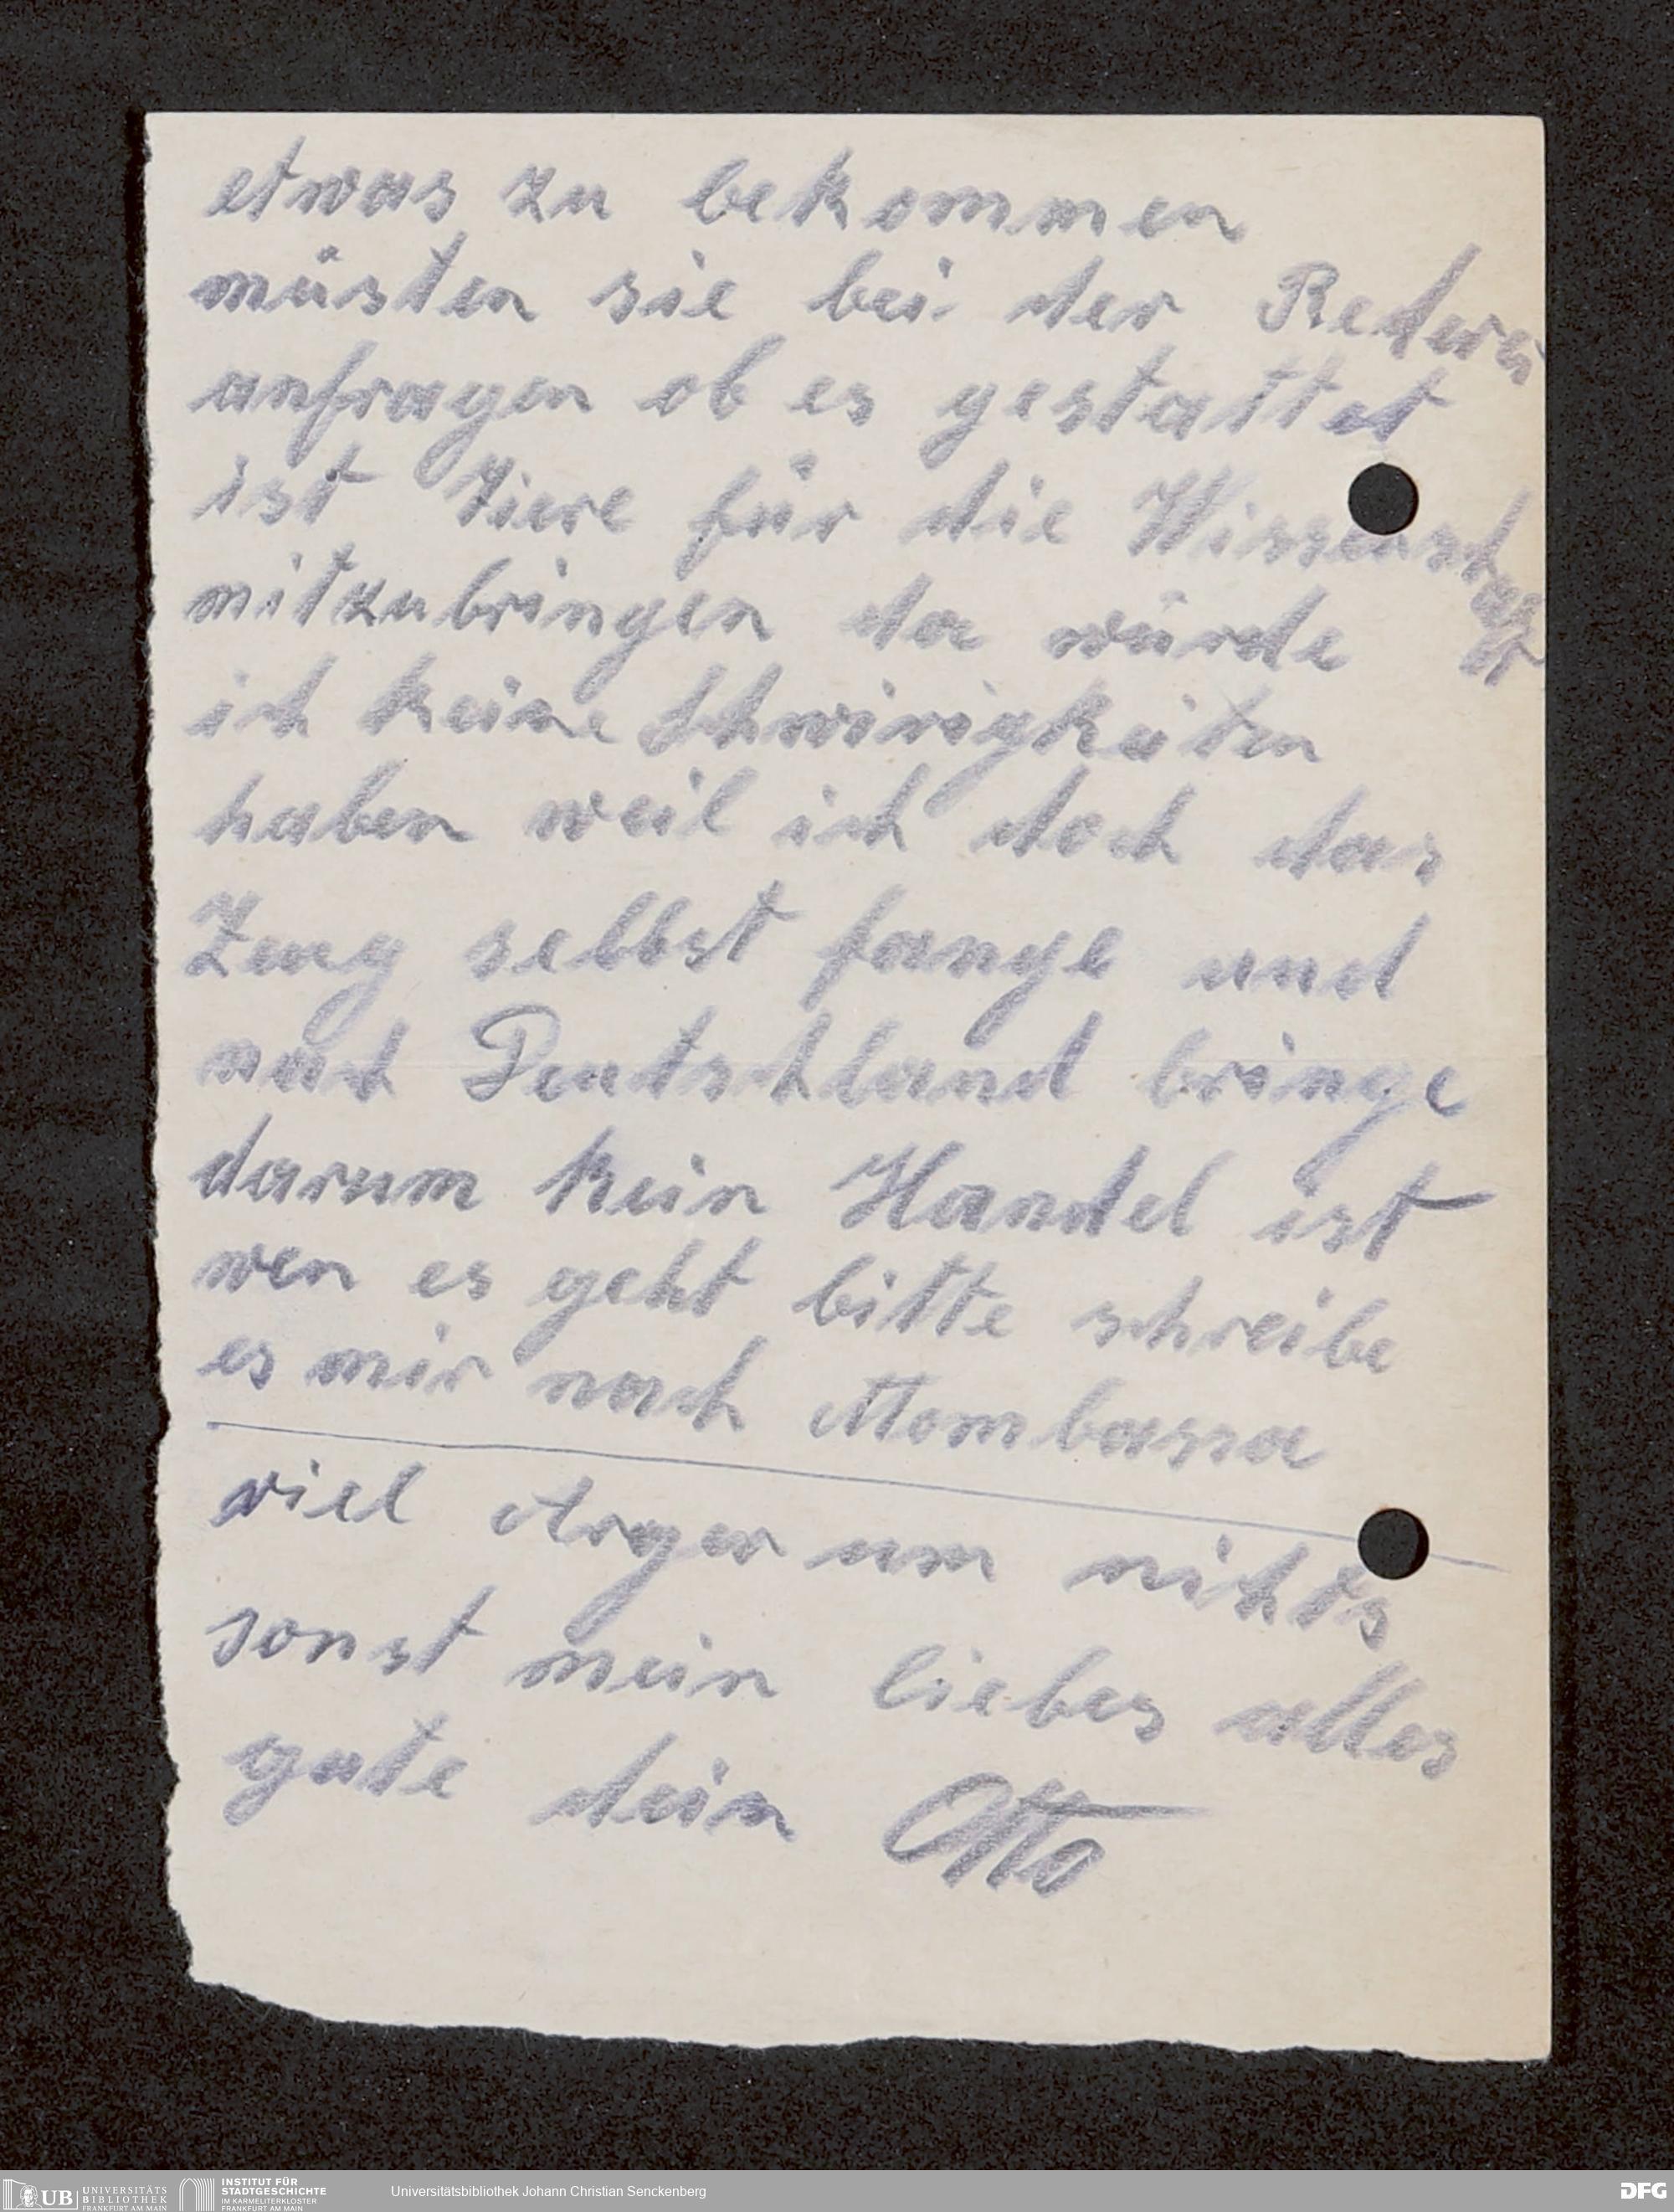 etwas zu bekommen
müsten sie bei der Rederei
anfragen ob es gestattet
ist Tiere für die Wissenschaft
mitzubringen da würde
ich keine Schwirigkeiten
haben weil ich doch das
Zeug selbst fange und
nach Deutschland bringe
darum kein Handel ist
wen es geht bitte schreibe
es mir nach Mombassa
viel Arger um nichts
sonst mein liebes alles
gute dein Otto
UB UNIVERSITÄTS
BIBLIOTHEK
FRANKFURT AM MAIN
INSTITUT FÜR
STADTGESCHICHTE
IM KARMELITERKLOSTER
FRANKFURT AM MAIN
Universitätsbibliothek Johann Christian Senckenberg
DFG